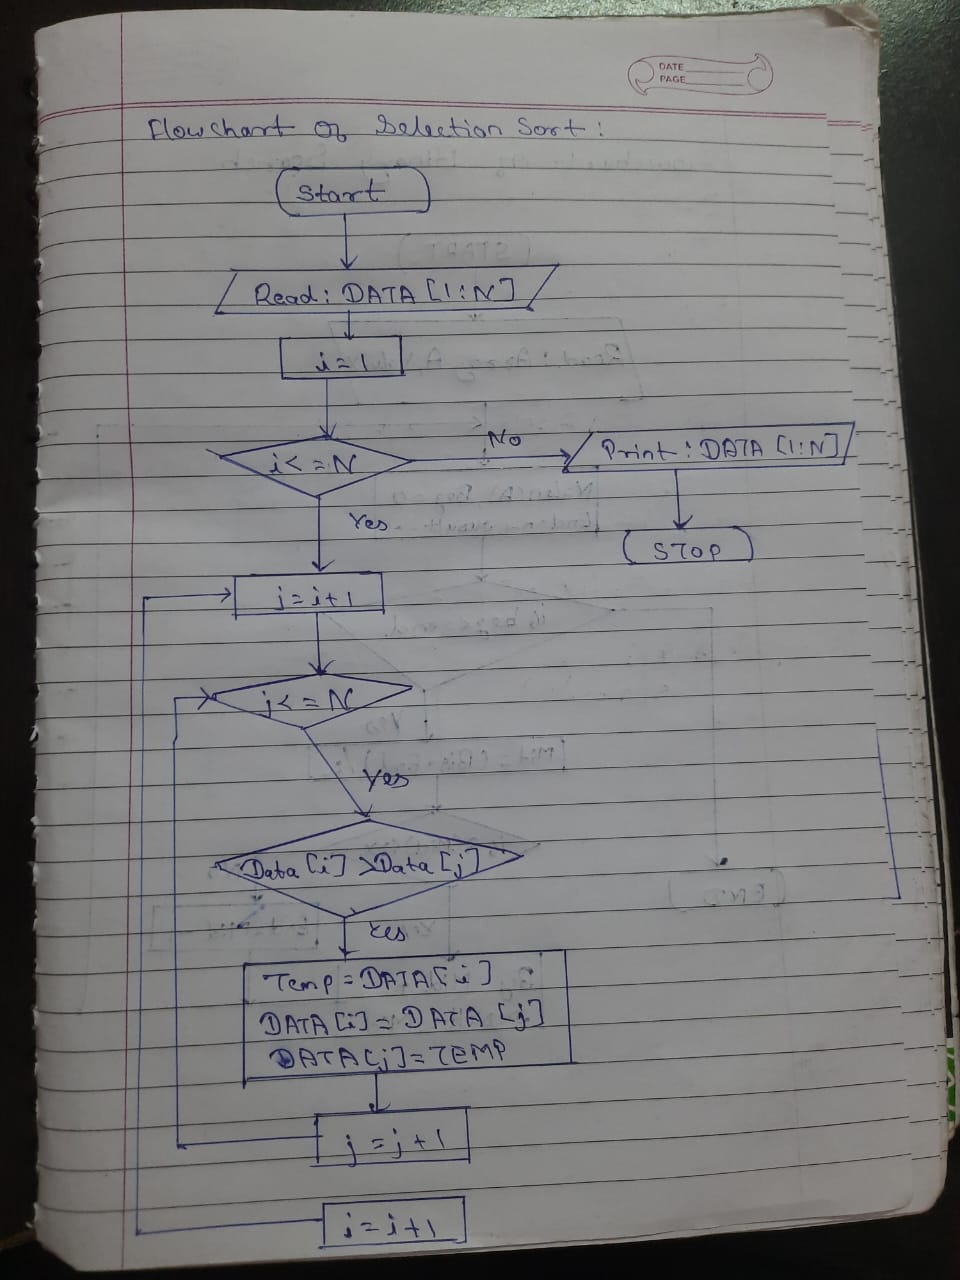 DATE
PAGE
Flowchart of Selection Sort :
Start
Read : DATA [1:N]
i = 1
i < = N
No
Print : DATA [1:N]
Yes
STOP
j = i + 1
j < = N
Yes
Data [i] > Data [j]
Yes
Temp = DATA [i]
DATA [i] = DATA [j]
DATA [j] = TEMP
j = j + 1
i = i + 1